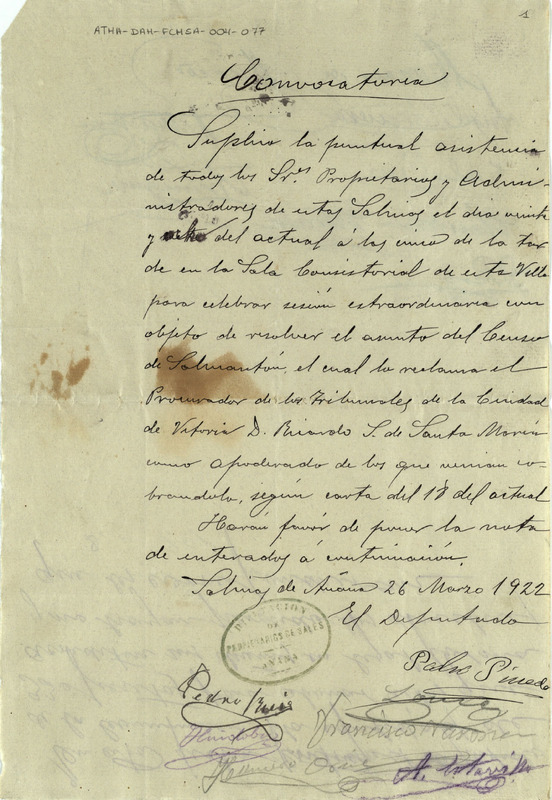 1
ATHA-DAH-FCMSA-004-077
Convocatoria
Suplico la puntual asistencia
de todos los Sres Propietarios y Admi-
nistradores de estas Salinas el dia veinte
y ocho del actual á las cinco de la tar
de en la Sala Consistorial de esta Villa
para celebrar sesión extraordinaria con
objeto de resolver el asunto del Censo
de Salmantón, el cual lo reclama el
Procurador de los Tribunales de la Ciudad
de Vitoria D. Ricardo S. de Santa María
como apoderado de los que venian co-
brandolo, según carta del 18 del actual
Harán favor de poner la nota
de enterados á continuación.
Salinas de Añana 26 Marzo 1922
El Diputado
DIPUTACION
DE
PROPIETARIOS DE SALES
AÑANA
Pablo Pinedo
Pedro Ruiz
Francisco
A.